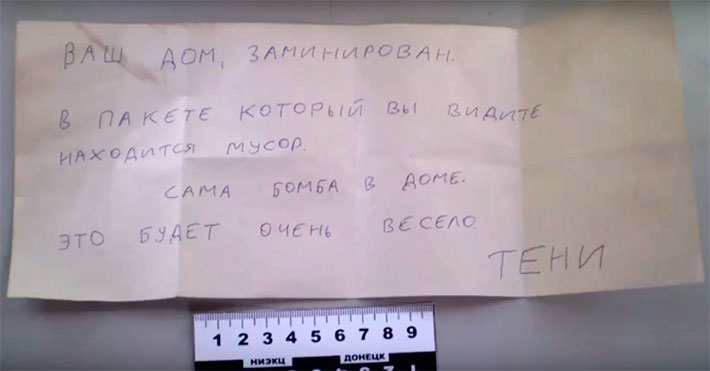 ВАШ ДОМ, ЗАМИНИРОВАН.
В ПАКЕТЕ КОТОРЫЙ ВЫ ВИДИТЕ
НАХОДИТСЯ МУСОР.
САМА БОМБА В ДОМЕ.
ЭТО БУДЕТ ОЧЕНЬ ВЕСЕЛО
ТЕНИ
1 2 3 4 5 6 7 8 9
НИЭКЦ ДОНЕЦК